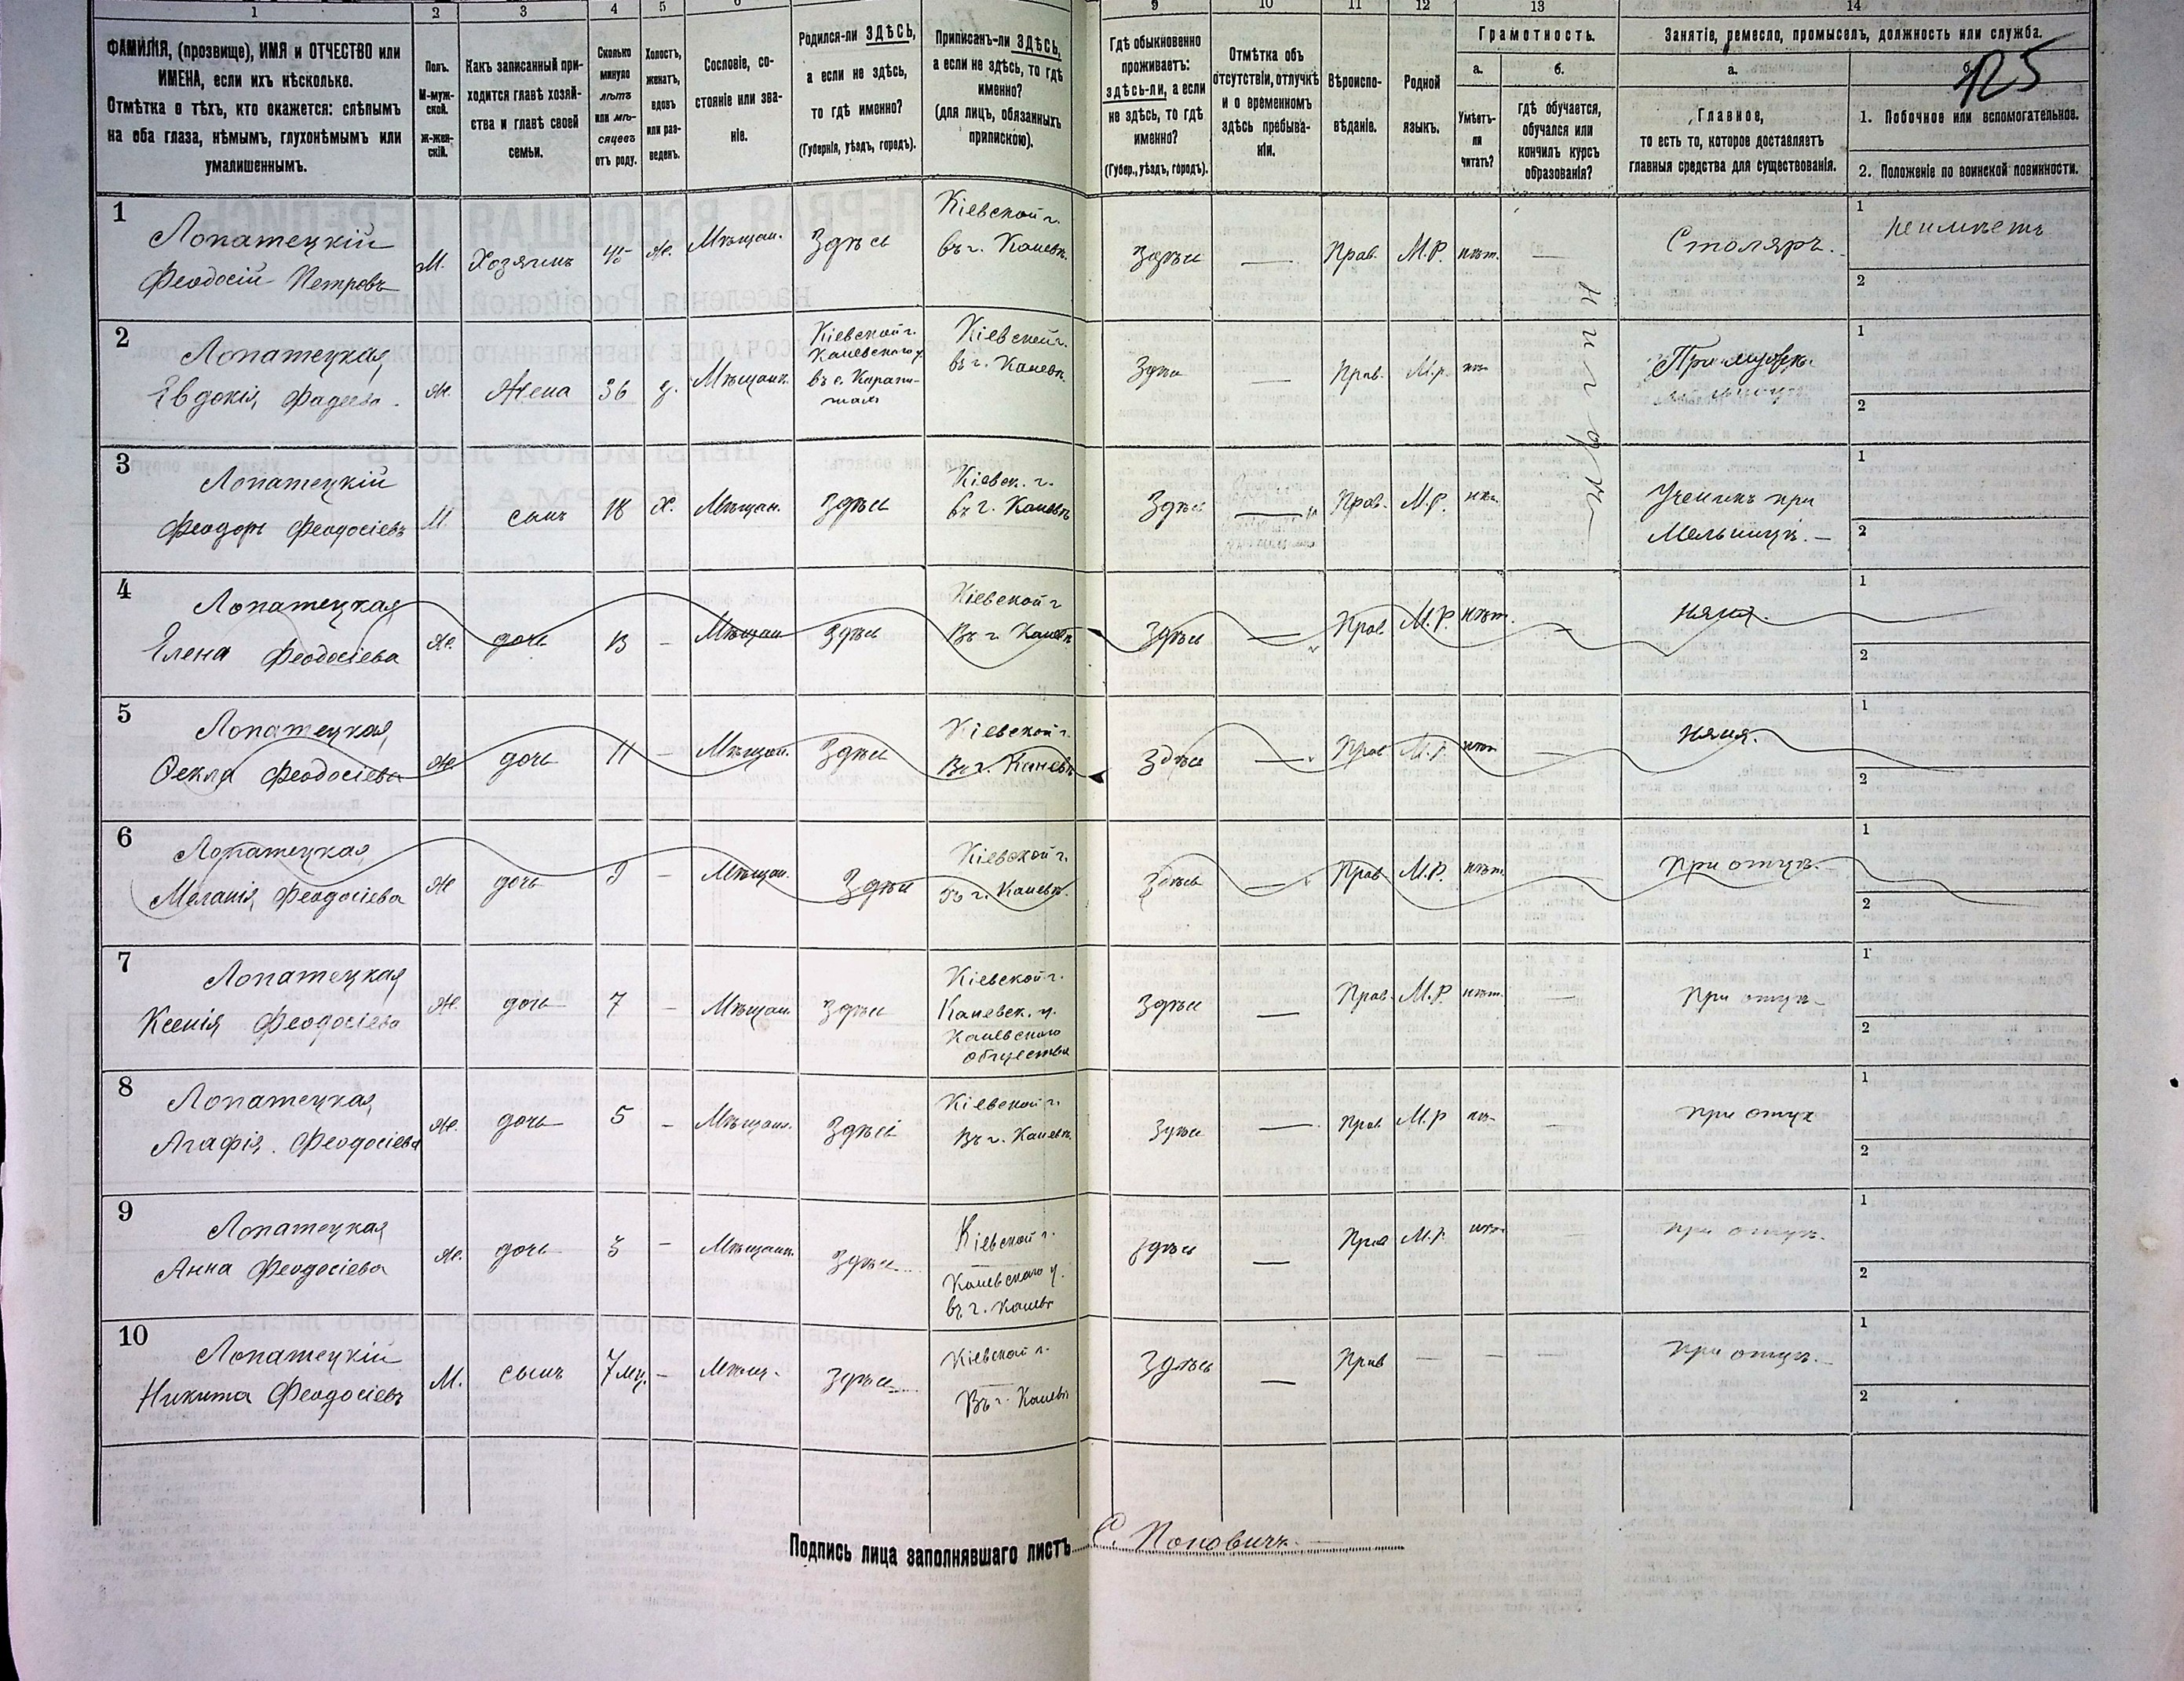 1 2 3 4 5 6 9 10 11 12 13 14
ФАМИЛІЯ, (прозвище), ИМЯ и ОТЧЕСТВО или
ИМЕНА, если ихъ нѣсколько.
Отмѣтка о тѣхъ, кто окажется: слѣпымъ
на оба глаза, нѣмымъ, глухонѣмымъ или
умалишеннымъ.
Полъ.
М-муж-
ской.
ж-жен-
скій.
Какъ записанный при-
ходится главѣ хозяй-
ства и главѣ своей
семьи.
Сколько
минуло
лѣтъ
или мѣ-
сяцевъ
отъ роду.
Холостъ,
женатъ,
вдовъ
или раз-
веденъ.
Сословіе, со-
стояніе или зва-
ніе.
Родился-ли ЗДѢСЬ,
а если не здѣсь,
то гдѣ именно?
(Губернія, уѣздъ, городъ).
Приписанъ-ли ЗДѢСЬ,
а если не здѣсь, то гдѣ
именно?
(для лицъ, обязанныхъ
припискою).
Гдѣ обыкновенно
проживаетъ:
здѣсь-ли, а если
не здѣсь, то гдѣ
именно?
(Губер., уѣздъ, городъ).
Отмѣтка объ
отсутствіи, отлучкѣ
и о временномъ
здѣсь пребыва-
ніи.
Вѣроиспо-
вѣданіе.
Родной
языкъ.
Грамотность.
а.
Умѣетъ-
ли
читать?
б.
гдѣ обучается,
обучался или
кончилъ курсъ
образованія?
Занятіе, ремесло, промыселъ, должность или служба.
а.
Главное,
то есть то, которое доставляетъ
главныя средства для существованія.
б.
125
1. Побочное или вспомогательное.
2. Положеніе по воинской повинности.
1
Лопатецкій
Феодосій Петровъ
М. Хозяинъ 45 Ж. Мѣщан. Здѣсь
Кіевской г.
въ г. Каневѣ.
Здѣсь — Прав. М.Р. нѣт. — Столяръ.
1 не имѣетъ
2
2
Лопатецкая
Евдокія Фадеева
Ж. Жена 36 З. Мѣщанк.
Кіевской г.
Каневскаго у.
въ с.
Кіевской г.
въ г. Каневѣ.
Здѣсь — Прав. М.р. нѣт
При мужѣ.
1
2
3
Лопатецкій
Феодоръ Феодосіевъ
М сынъ 18 Х. Мѣщан. Здѣсь
Кіевск. г.
въ г. Каневѣ
Здѣсь — Прав. М.Р. нѣт.
Ученикъ при
Мельницѣ. —
1
2
4
Лопатецкая
Елена Феодосіева
Ж. дочь 13 – Мѣщан Здѣсь
Кіевской г
Въ г Каневѣ
Здѣсь — Прав. М.Р. нѣт. — няня.
1
2
5
Лопатецкая
Фекла Феодосіева
Ж. дочь 11 – Мѣщан. Здѣсь
Кіевской г.
Въ г. Каневѣ
Здѣсь — Прав М.Р. нѣт — няня.
1
2
6
Лопатецкая
Меланія Феодосіева
Ж дочь 9 – Мѣщан. Здѣсь
Кіевской г.
Въ г. Каневѣ.
Здѣсь — Прав М.Р. нѣт. при отцѣ.
1
2
7
Лопатецкая
Ксенія Феодосіева
Ж. дочь 7 – Мѣщан Здѣсь
Кіевской г.
Каневск. у.
Каневскаго
общества
Здѣсь — Прав. М.Р нѣт. — при отцѣ
1
2
8
Лопатецкая
Агафія. Феодосіева
Ж. дочь 5 – Мѣщан. Здѣсь
Кіевской г.
Въ г. Каневѣ
Здѣсь — Прав М.р нѣт — при отцѣ
1
2
9
Лопатецкая
Анна Феодосіева
Ж. дочь 3 – Мѣщанк. Здѣсь
Кіевской г.
Каневскаго у.
въ г. Каневѣ
Здѣсь — Прав М.р. нѣт — при отцѣ.
1
2
10
Лопатецкій
Никита Феодосіевъ
М. сынъ 7 мц. – Мѣщ. Здѣсь
Кіевской г.
Въ г. Каневѣ
Здѣсь — Прав — — — при отцѣ.
1
2
Подпись лица заполнявшаго листъ С. Поповичъ